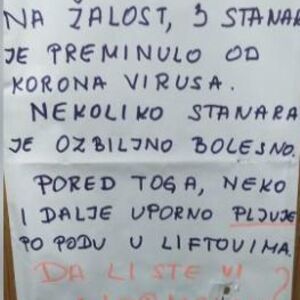 NA ŽALOST, 3 STANAR
JE PREMINULO OD
KORONA VIRUSA.
NEKOLIKO STANARA
JE OZBILJNO BOLESNO.
PORED TOGA, NEKO
I DALJE UPORNO PLJUJE
PO PODU U LIFTOVIMA.
DA LI STE VI
?